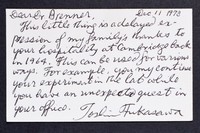 Dear Dr. Brenner, Dec 11 1973
This little thing is a delayed ex-
pression of my family's thanks to
your hospitality at Cambridge back
in 1964. This can be used for various
ways. For example, you may continue
your experiment in the lab while
you have an unexpected guest in
your office. Toshio Fukasawa